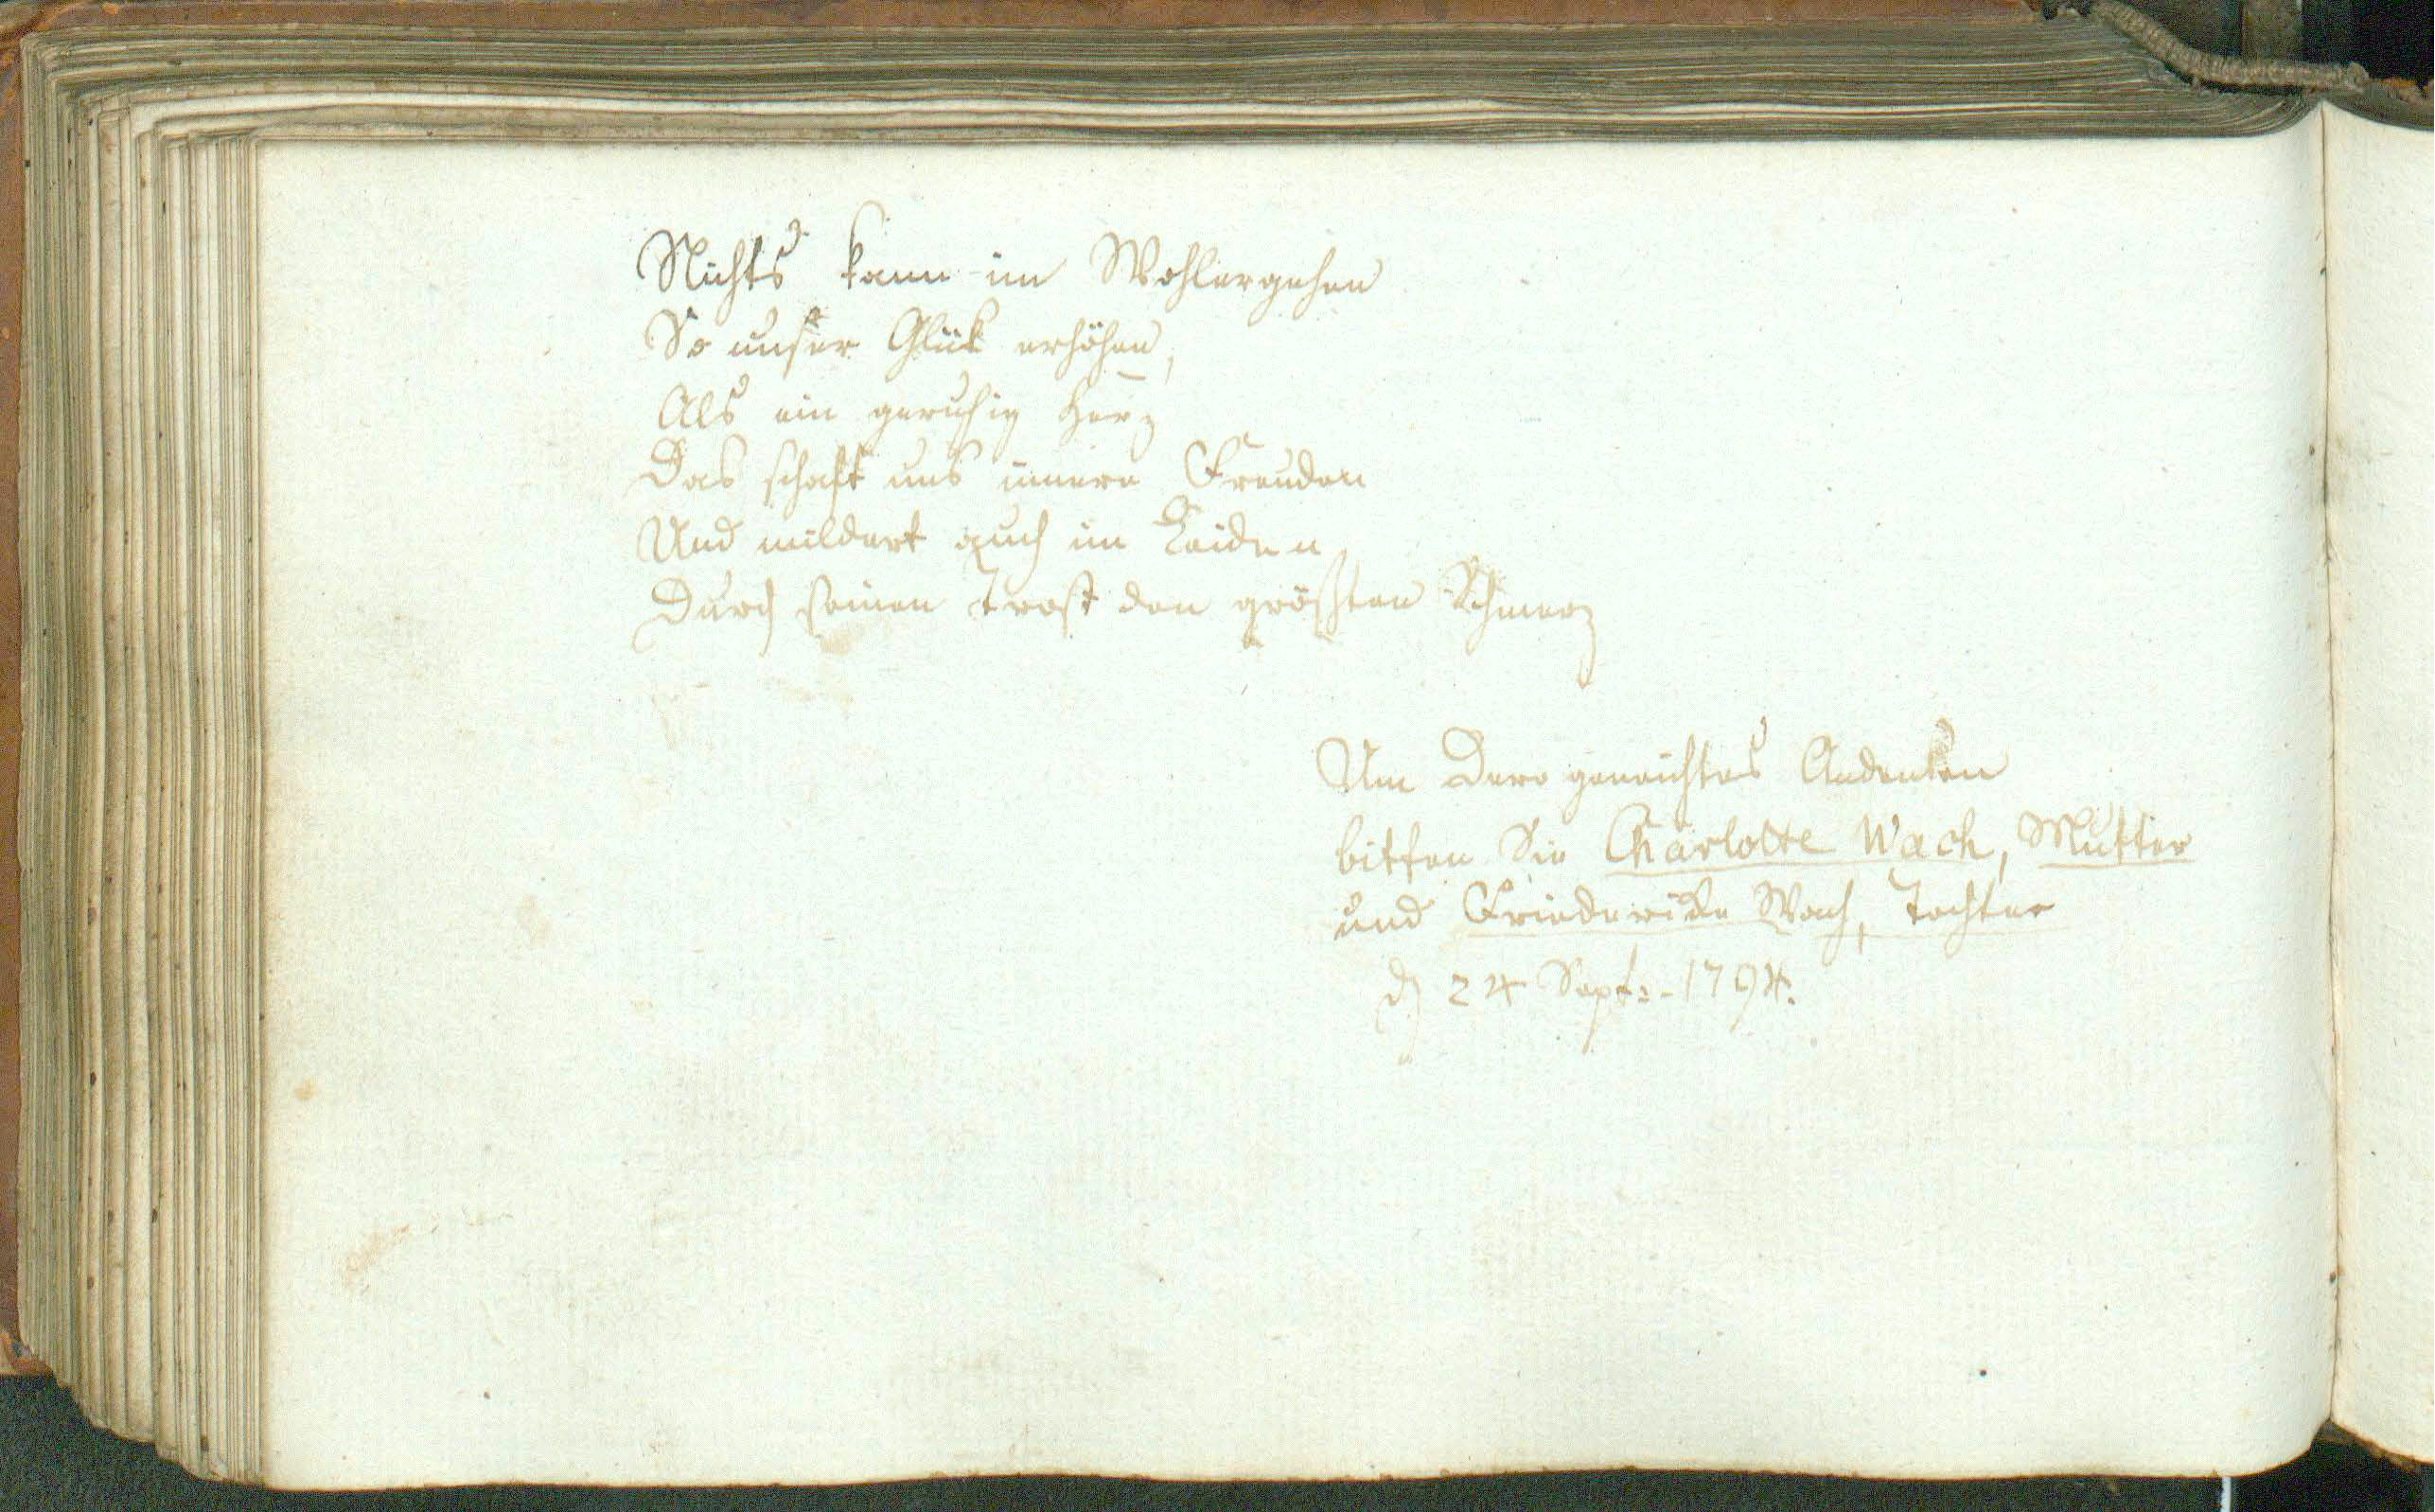 Nichts kann im Wohlergehen
So unser Glük erhöhen,
Als ein geruhig Herz
Das schaft uns innere Freuden
Und mildert auch im Leiden
Durch seinen Trost den größten Schmerz
Um Dero geneichtes Andenken
bitten Sie Charlotte Wach, Mutter
und Friederike Wach, Tochter
d 24 Sept:-1794.